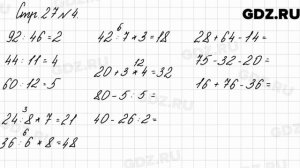 GDZ.RU
Стр. 27 № 4.
92 : 46 = 2
44 : 11 = 4
60 : 12 = 5
24 : 8 × 7 = 21
3
36 : 6 × 8 = 48
6
42 : 7 × 3 = 18
6
20 + 3 × 4 = 32
12
80 - 5 : 5 =
40 - 26 : 2 =
28 + 64 - 14 =
75 - 32 - 20 =
16 + 76 - 36 =
GDZ.RU